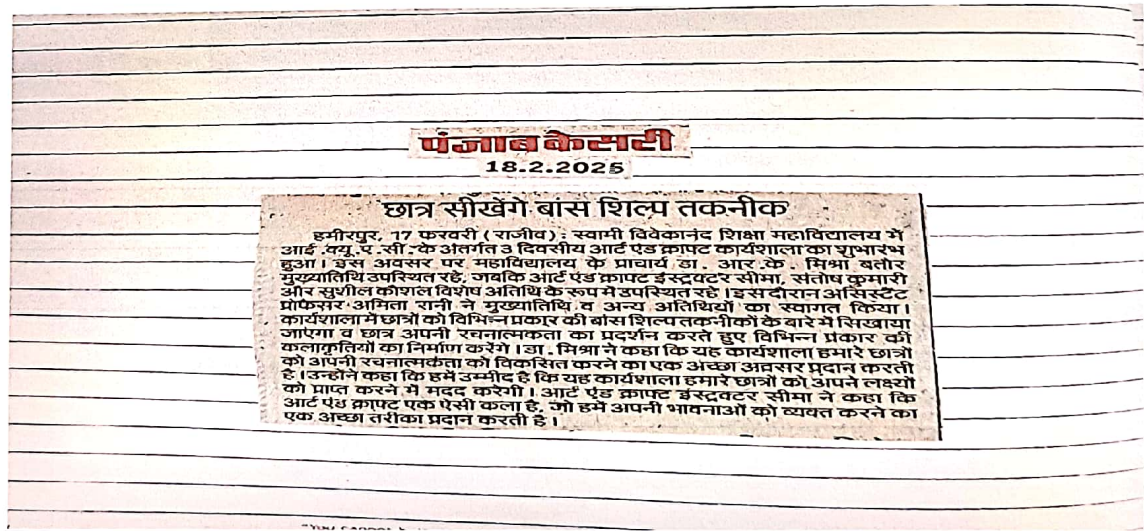 पंजाब केसरी
18.2.2025
छात्र सीखेंगे बांस शिल्प तकनीक
हमीरपुर, 17 फरवरी (राजीव) : स्वामी विवेकानंद शिक्षा महाविद्यालय में
आई.क्यू.ए.सी. के अंतर्गत 3 दिवसीय आर्ट एंड क्राफ्ट कार्यशाला का शुभारंभ
हुआ। इस अवसर पर महाविद्यालय के प्राचार्य डा. आर.के. मिश्रा बतौर
मुख्यातिथि उपस्थित रहे, जबकि आर्ट एंड क्राफ्ट इंस्ट्रक्टर सीमा, संतोष कुमारी
और सुशील कौशल विशेष अतिथि के रूप में उपस्थित रहे। इस दौरान असिस्टैंट
प्रोफैसर अमिता रानी ने मुख्यातिथि व अन्य अतिथियों का स्वागत किया।
कार्यशाला में छात्रों को विभिन्न प्रकार की बांस शिल्प तकनीकों के बारे में सिखाया
जाएगा व छात्र अपनी रचनात्मकता का प्रदर्शन करते हुए विभिन्न प्रकार की
कलाकृतियों का निर्माण करेंगे। डा. मिश्रा ने कहा कि यह कार्यशाला हमारे छात्रों
को अपनी रचनात्मकता को विकसित करने का एक अच्छा अवसर प्रदान करती
है। उन्होंने कहा कि हमें उम्मीद है कि यह कार्यशाला हमारे छात्रों को अपने लक्ष्यों
को प्राप्त करने में मदद करेगी। आर्ट एंड क्राफ्ट इंस्ट्रक्टर सीमा ने कहा कि
आर्ट एंड क्राफ्ट एक ऐसी कला है, जो हमें अपनी भावनाओं को व्यक्त करने का
एक अच्छा तरीका प्रदान करती है।